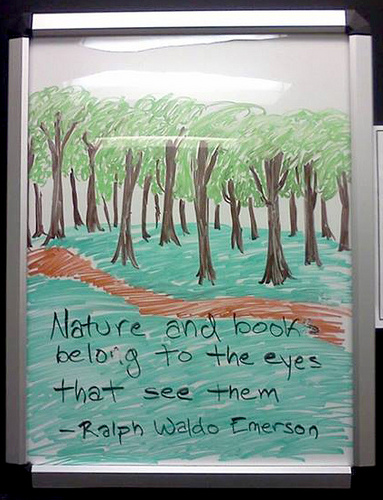 Nature and books
belong to the eyes
that see them
- Ralph Waldo Emerson